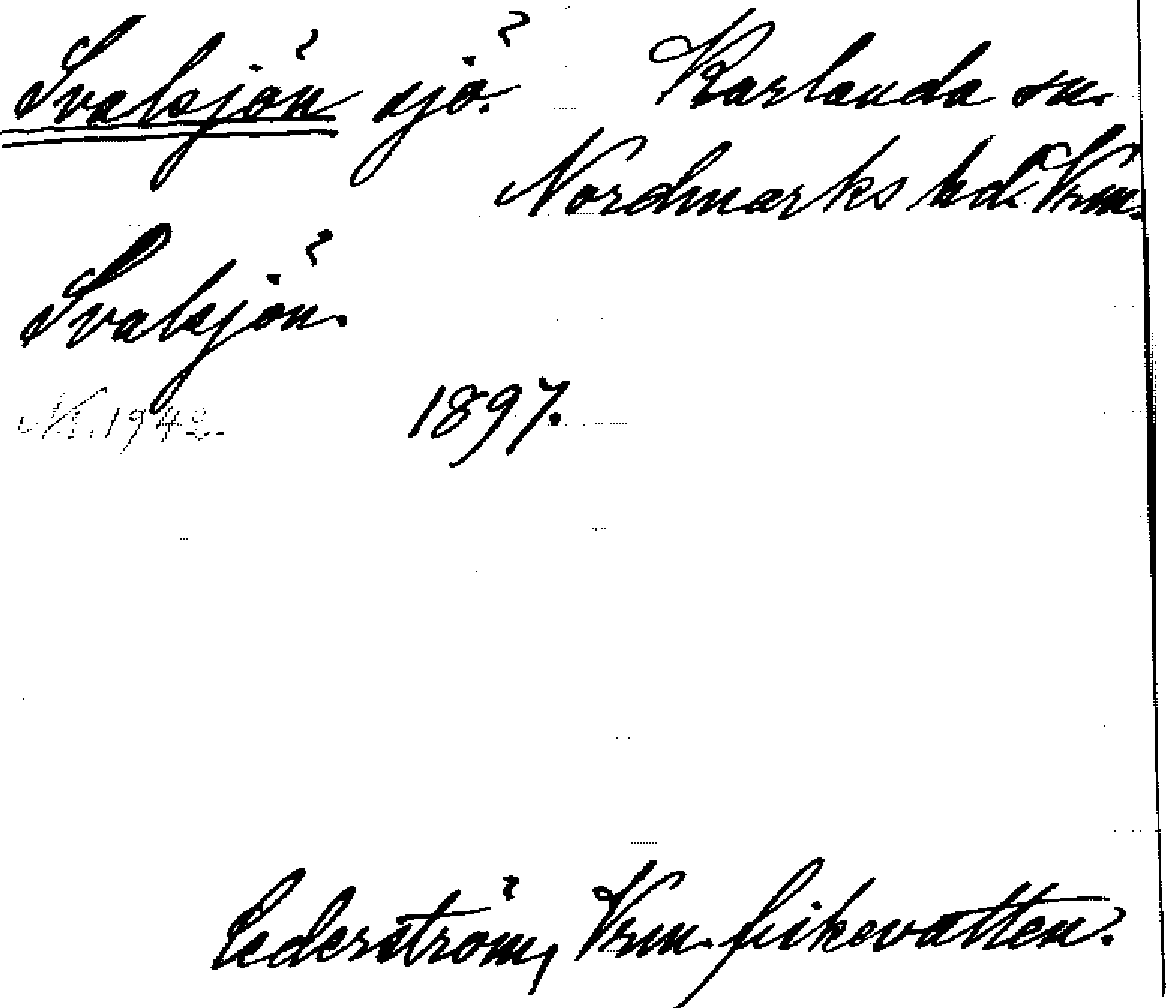 Svalsjön sjö. Karlanda sn.
Nordmarks hd. Vrm.
Svalsjön.
1942. 1897.
Cederström, Vrm. fiskevatten.